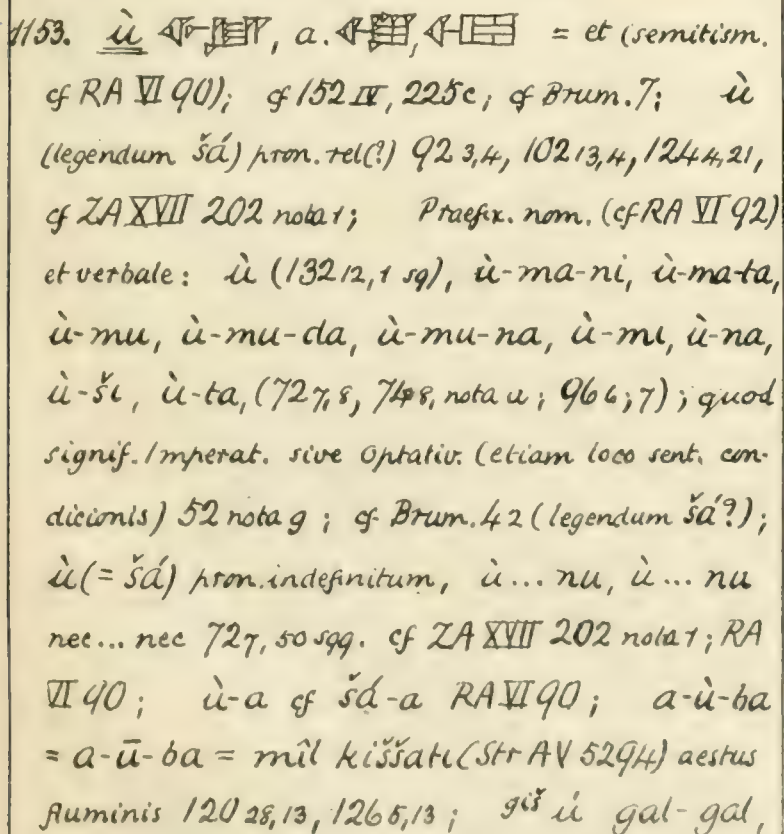 1153. ù 𒅇, a. = et (semitism.
cf RA VI 90); cf 152 IV, 225c; cf Brum. 7; ù
(legendum šá) pron. rel(?) 92 3,4, 102 13,4, 124 4,21,
cf ZA XVII 202 nota 1; Praefix. nom. (cf RA VI 92)
et verbale: ù (132 12,1 sq), ù-ma-ni, ù-ma-ta,
ù-mu, ù-mu-da, ù-mu-na, ù-mi, ù-na,
ù-ši, ù-ta, (72 7,8, 74 8, nota u; 96 6;7); quod
signif. Imperat. sive Optativ. (etiam loco sent. con-
dicionis) 52 nota g; cf Brum. 42 (legendum šá?);
ù (= šá) pron. indefinitum, ù... nu, ù... nu
nec... nec 72 7, 50 sqq. cf ZA XVII 202 nota 1; RA
VI 90; ù-a cf šá-a RA VI 90; a-ù-ba
= a-ū-ba = mîl kiššati (Str AV 5294) aestus
fluminis 120 28,13, 126 5,13; giš ú gal-gal,